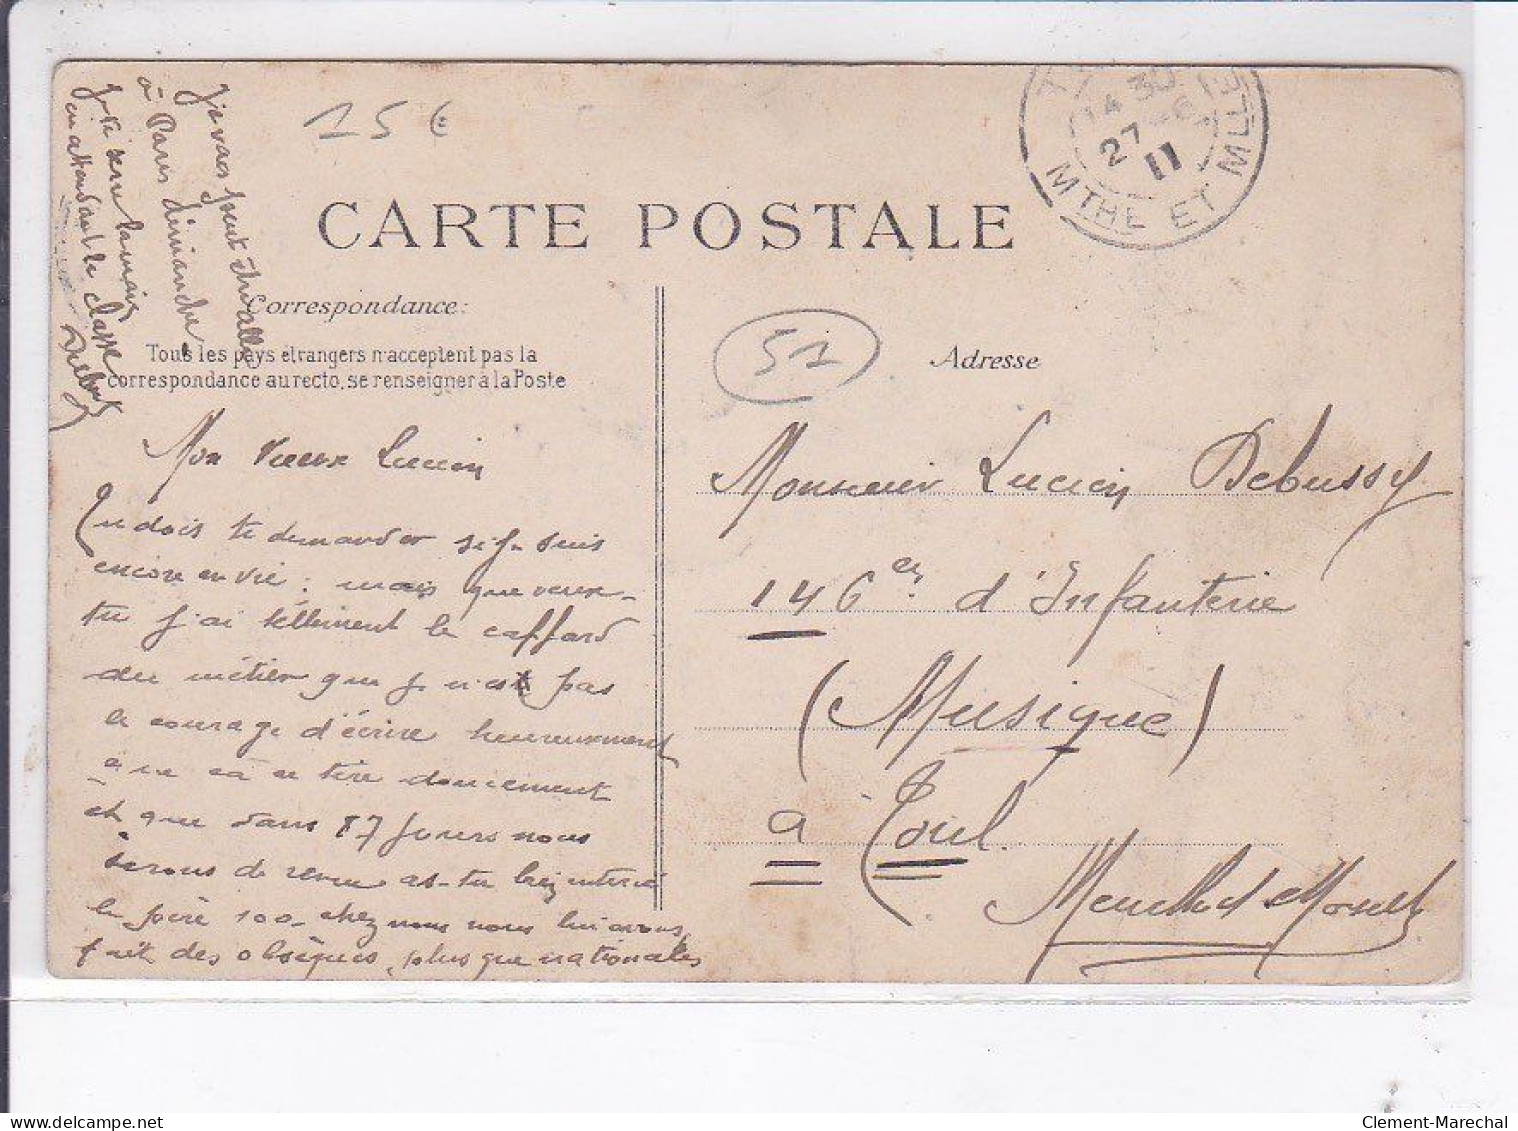 15 €
CARTE POSTALE
14 30
27 - 6
11
MTHE ET MLLE
Correspondance:
Tous les pays étrangers n'acceptent pas la
correspondance au recto, se renseigner à la Poste
51
Adresse
Mon vieux Lucien
Tu dois te demander si je suis
encore en vie : mais que veux-
tu j'ai tellement le caffard
du métier que je n'ai pas
le courage d'écrire heureusement
que ça se tire doucement
et que dans 87 jours nous
serons de revue as-tu bien enterré
le père 100 chez nous nous lui avons
fait des obsèques plus que nationales
Je vais peut être aller
à Paris dimanche
Je te serre la main
en attendant la classe
Monsieur Lucien Debussy
146e d'Infanterie
(Musique)
à Toul.
Meurthe et Moselle
Clement-Marechal
delcampe.net